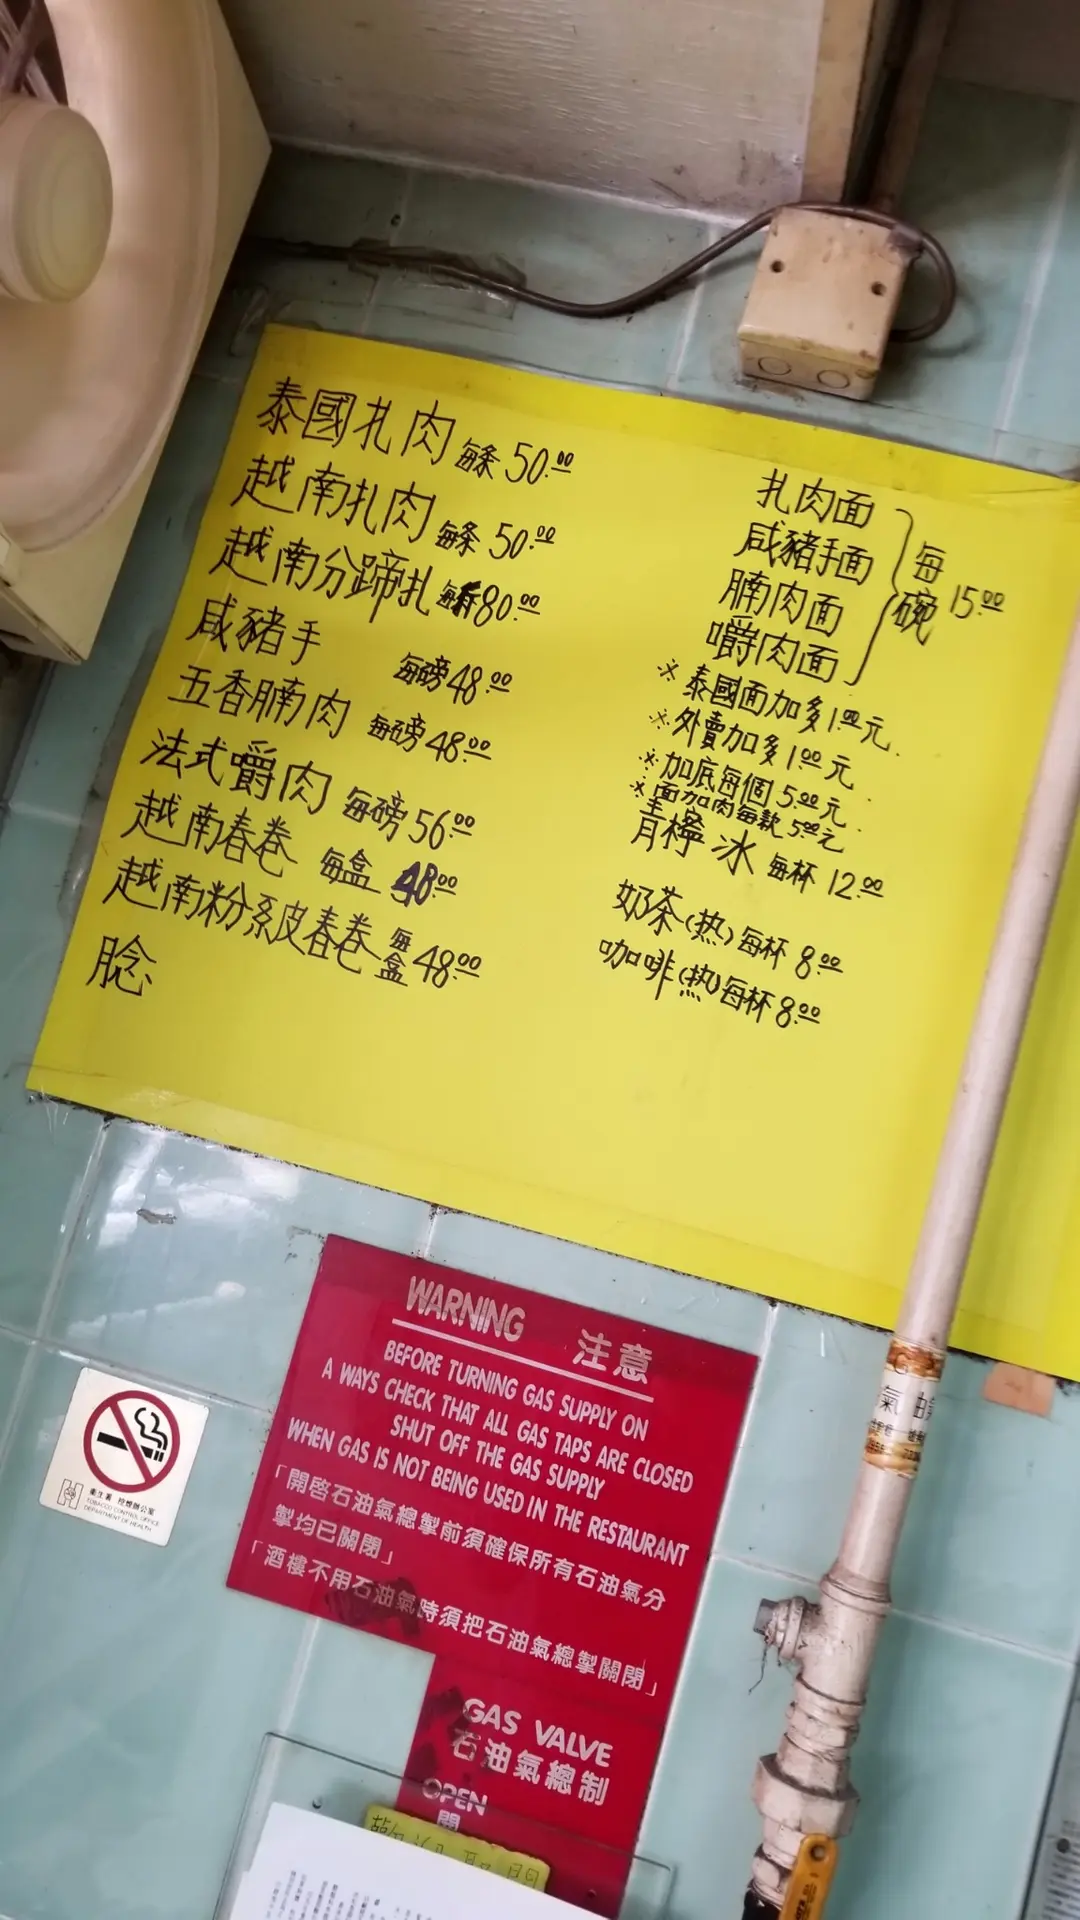 泰國扎肉 每条 50.00
越南扎肉 每条 50.00
越南分蹄扎 每斤 80.00
咸豬手 每磅 48.00
五香腩肉 每磅 48.00
法式嚼肉 每磅 56.00
越南春卷 每盒 48.00
越南粉絲皮春卷 每盒 48.00
腍
扎肉面
咸豬手面
腩肉面
嚼肉面
每碗 15.00
※泰國面加多1.00元.
※外賣加多1.00元
※加底每個5.00元.
※面加肉每款5.00元
青檸冰 每杯 12.00
奶茶(热)每杯 8.00
咖啡(热)每杯 8.00
WARNING 注意
BEFORE TURNING GAS SUPPLY ON
A WAYS CHECK THAT ALL GAS TAPS ARE CLOSED
SHUT OFF THE GAS SUPPLY
WHEN GAS IS NOT BEING USED IN THE RESTAURANT
「開啓石油氣總掣前須確保所有石油氣分
掣均已關閉」
「酒樓不用石油氣時須把石油氣總掣關閉」
GAS VALVE
石油氣總制
OPEN
開
衛生署 控煙辦公室
TOBACCO CONTROL OFFICE
DEPARTMENT OF HEALTH